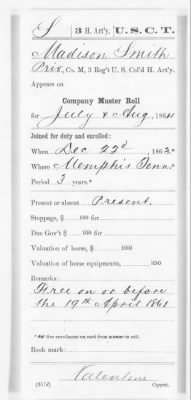 S | 3 H. Art'y. | U. S. C. T.
Madison Smith
Priv, Co. M, 3 Reg't U. S. Col'd H. Art'y.
Appears on
Company Muster Roll
for July & Aug, 1864
Joined for duty and enrolled:
When Dec 22d, 1863.*
Where Memphis Tenn.*
Period 3 years.*
Present or absent Present.
Stoppage, $ 100 for
Due Gov't $ 100 for
Valuation of horse, $ 100
Valuation of horse equipments, $ 100
Remarks:
Free on or before
the 19th April 1861
* See enrollment on card from muster-in roll.
Book mark:
Valentine
(357d) Copyist.